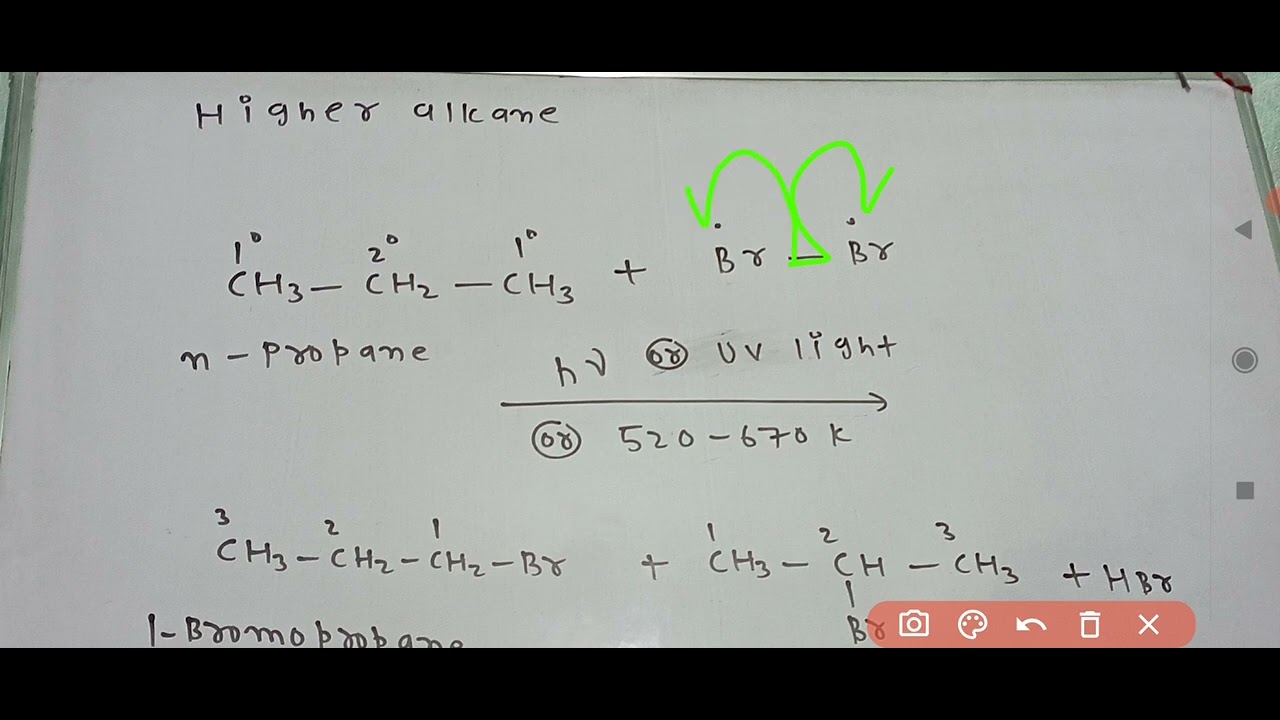 Higher alkane
1° 2° 1°
CH3 — CH2 — CH3 + Br — Br
n - propane
hν or UV light
or 520 - 670 K
3 2 1 1 2 3
CH3 — CH2 — CH2 — Br + CH3 — CH — CH3 + HBr
Br
1-Bromopropane